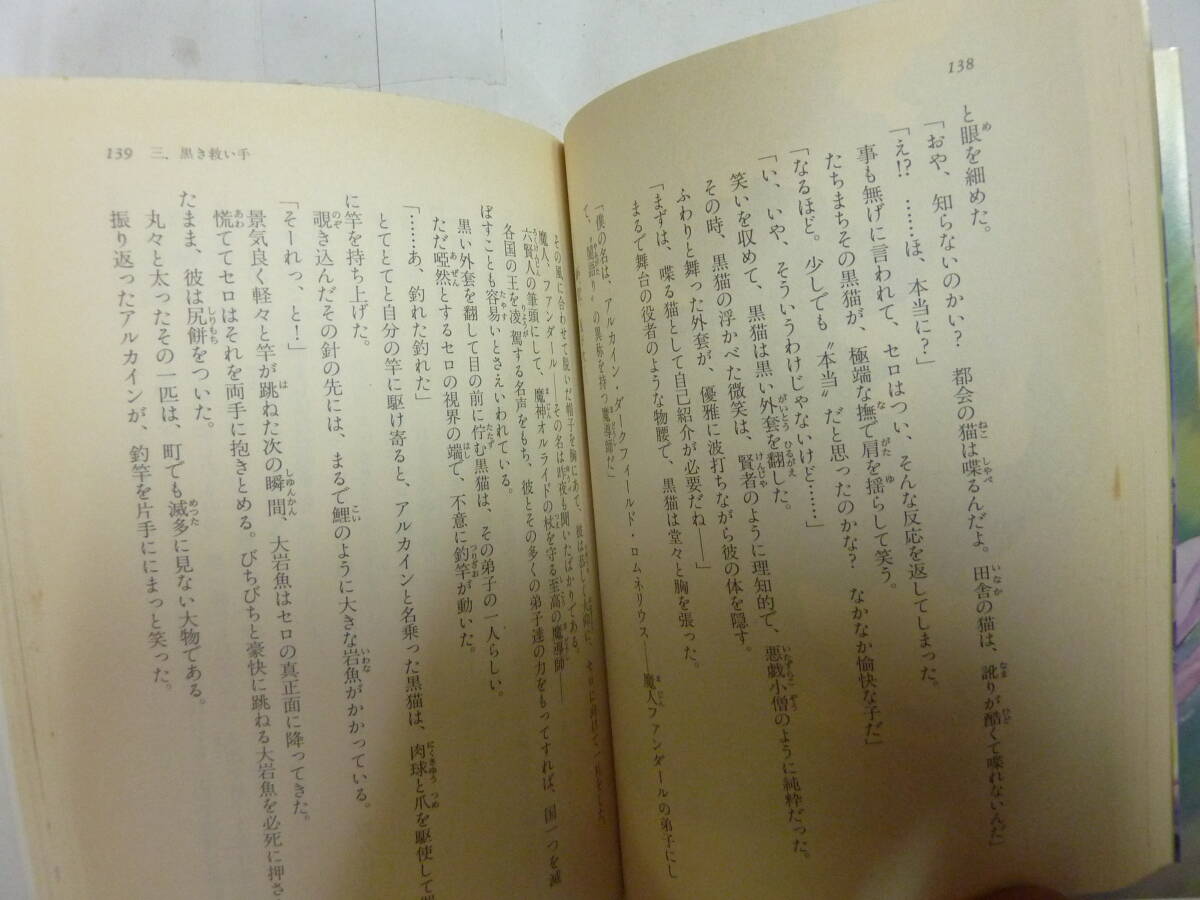 138
と眼を細めた。
「おや、知らないのかい? 都会の猫は喋るんだよ。田舎の猫は、訛りが酷くて喋れないんだ」
「え!? ……ほ、本当に?」
事も無げに言われて、セロはつい、そんな反応を返してしまった。
たちまちその黒猫が、極端な撫で肩を揺らして笑う。
「なるほど。少しでも〝本当〟だと思ったのかな? なかなか愉快な子だ」
「い、いや、そういうわけじゃないけど……」
笑いを収めて、黒猫は黒い外套を翻した。
その時、黒猫の浮かべた微笑は、賢者のように理知的で、悪戯小僧のように純粋だった。
ふわりと舞った外套が、優雅に波打ちながら彼の体を隠す。
まるで舞台の役者のような物腰で、黒猫は堂々と胸を張った。
「まずは、喋る猫として自己紹介が必要だね――
「僕の名は、アルカイン・ダークフィールド・ロムネリウス――魔人ファンダールの弟子にし
て、〝闇語り〟の異称を持つ魔導師だ」
その風に合わせて脱いだ帽子を胸にあて、彼は
魔人、ファンダール――その名は昨夜も聞いたばかりである。
六賢人の筆頭にして、魔神オルライドの杖を守る至高の魔導師――
各国の王を凌駕する名声をもち、彼とその多くの弟子達の力をもってすれば、国一つを滅
ぼすことも容易いとさえいわれている。
黒い外套を翻して目の前に佇む黒猫は、その弟子の一人らしい。
ただ啞然とするセロの視界の端で、不意に釣竿が動いた。
「……あ、釣れた釣れた」
とてとてと自分の竿に駆け寄ると、アルカインと名乗った黒猫は、肉球と爪を駆使して
に竿を持ち上げた。
覗き込んだその針の先には、まるで鯉のように大きな岩魚がかかっている。
「そーれっ、と!」
景気良く軽々と竿が跳ねた次の瞬間、大岩魚はセロの真正面に降ってきた。
慌ててセロはそれを両手に抱きとめる。びちびちと豪快に跳ねる大岩魚を必死に押さ
たまま、彼は尻餅をついた。
丸々と太ったその一匹は、町でも滅多に見ない大物である。
振り返ったアルカインが、釣竿を片手ににまっと笑った。
139 三、黒き救い手